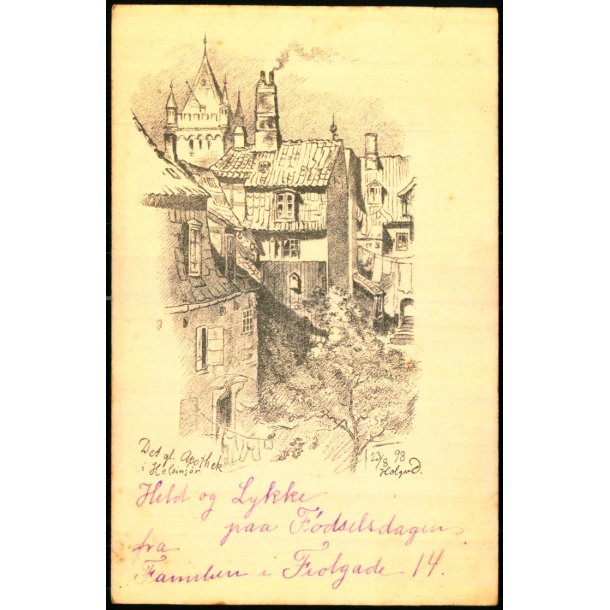 Det gl. Apothek
i Helsingør
23/8 98
Holger D.
Held og Lykke
paa Fødselsdagen.
fra
Familien i Fiolgade 14.